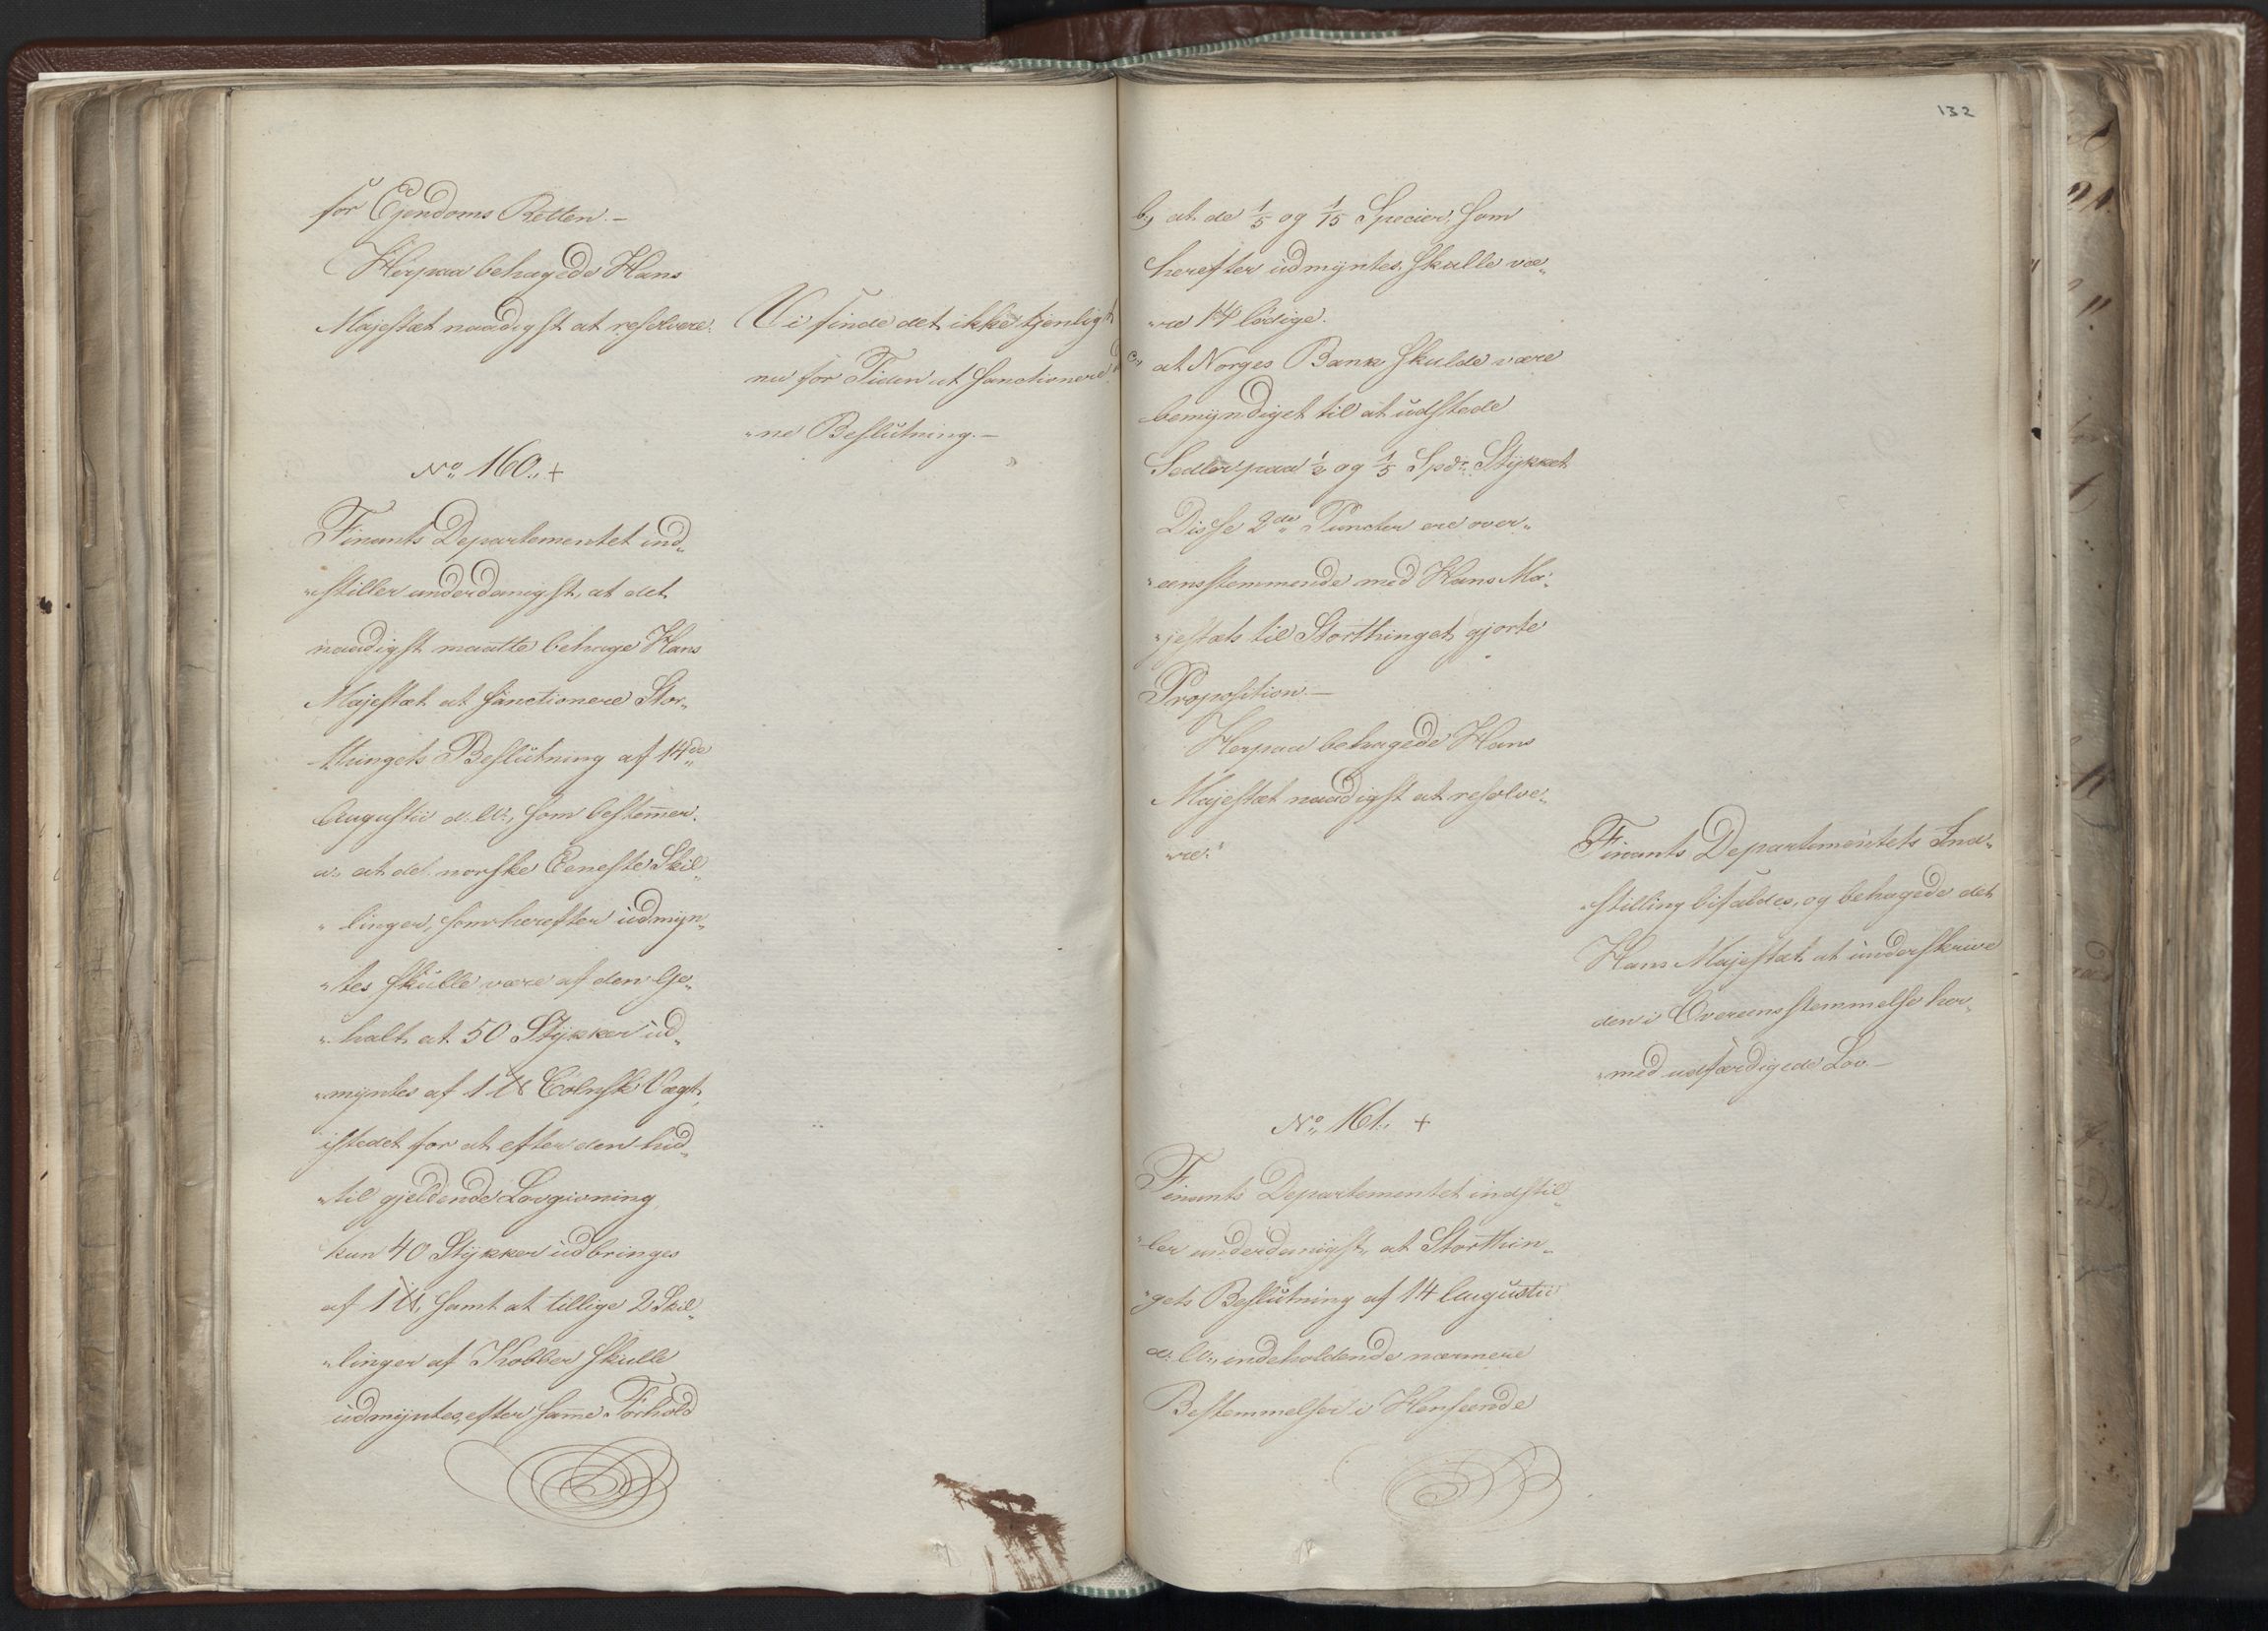 for Ejendoms Retten. —
Herpaa behagede Hans
Majestæt naadigst at resolvere:
Vi finde det ikke tjenligt
nu for Tiden at sanctionere d
"ne Beslutning. —
No 160. +
Finants Departementet ind„
"stiller underdanigst, at det
naadigst maatte behage Hans
Majestæt at sanctionere Stor„
thingets Beslutning af 14de
Augustii d. A., som bestemmer:
a., at de norske Eeneste Skil„
"linger, som herefter udmyn„
"tes skulle være af den Ge„
"halt, at 50 Stykker ud„
"myntes af 1 ℔ Cölnsk Vægt,
istedet for at efter den hid„
"til gjeldende Lovgivning
kun 40 Stykker udbringes
af 1 ℔, samt at tillige 2 Skil„
"linger af Kobber skulle
udmyntes, efter samme Forhold
132
b, at de 1/5 og 1/15 Specier, som
herefter udmyntes, skulle væ„
"re 14 lödige.
c., at Norges Bank skulde være
bemyndiget til at udstede
Sedler paa 1/2 og 1/5 Spdr. Stykket
Disse 2de Puncter ere over„
"eensstemmende med Hans Ma„
"jestæts til Storthinget gjorte
Proposition. —
Herpaa behagede Hans
Majestæt naadigst at resolve„
"re:
Finants Departementets Ind„
"stilling bifaldes, og behagede det
Hans Majestæt at underskrive
den i Overeensstemmelse her„
"med udfærdigede Lov. —
No 161. +
Finants Departementet indstil„
"ler underdanigst, at Storthin„
"gets Beslutning af 14 Augustii
d. A., indeholdende nærmere
Bestemmelser i Henseende